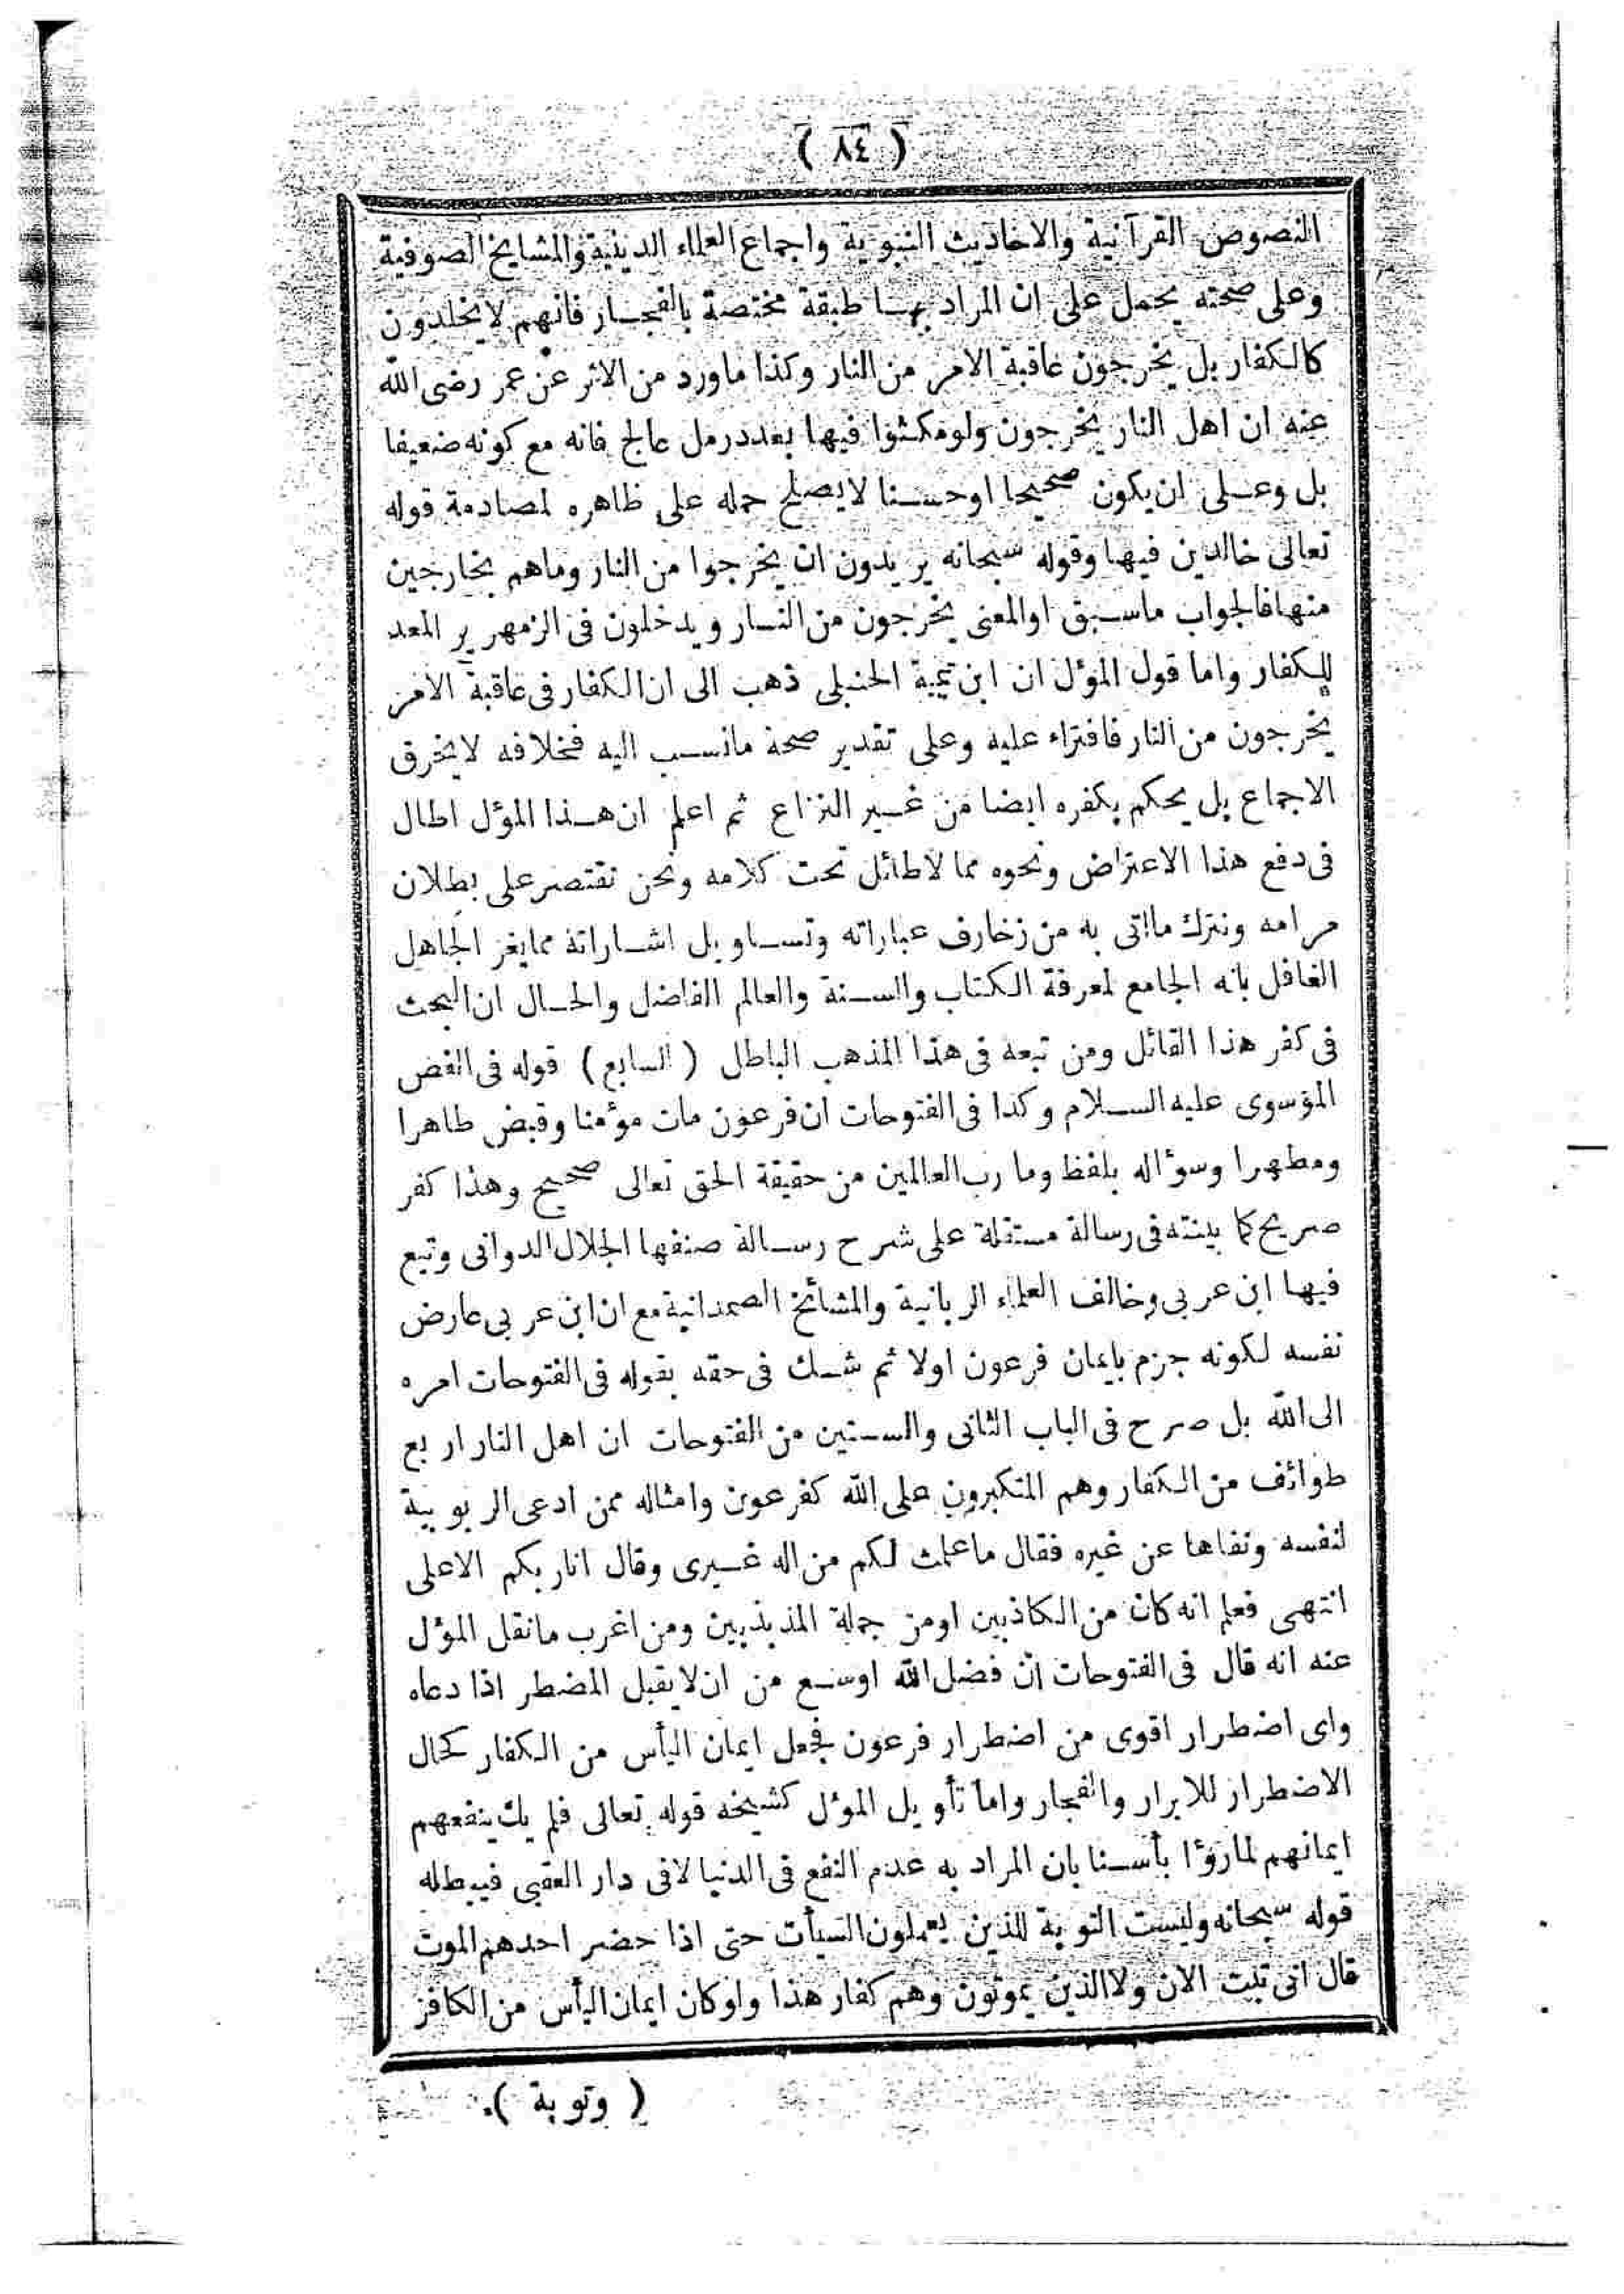 ( ٨٤ )
النصوص القرآنية والاحاديث النبوية واجماع العلماء الدينية والمشايخ الصوفية
وعلى صحته يحمل على ان المراد بها طبقة مختصة بالفجار فانهم لا يخلدون
كالكفار بل يخرجون عاقبة الامر من النار وكذا ماورد من الاثر عن عمر رضى الله
عنه ان اهل النار يخرجون ولو مكثوا فيها بعدد رمل عالج فانه مع كونه ضعيفا
بل وعلى ان يكون صحيحا او حسنا لا يصلح حمله على ظاهره لمصادمة قوله
تعالى خالدين فيها وقوله سبحانه يريدون ان يخرجوا من النار وماهم بخارجين
منها فالجواب ماسبق او المعنى يخرجون من النار ويدخلون فى الزمهرير المعد
للكفار واما قول المؤل ان ابن تيمية الحنبلى ذهب الى ان الكفار فى عاقبة الامر
يخرجون من النار فافتراء عليه وعلى تقدير صحة مانسب اليه فخلافه لا يخرق
الاجماع بل يحكم بكفره ايضا من غير النزاع ثم اعلم ان هذا المؤل اطال
فى دفع هذا الاعتراض ونحوه مما لا طائل تحت كلامه ونحن نقتصر على بطلان
مرامه ونترك ما اتى به من زخارف عباراته وتساويل اشاراته مما يغر الجاهل
الغافل بانه الجامع لمعرفة الكتاب والسنة والعالم الفاضل والحال ان البحث
فى كفر هذا القائل ومن تبعه فى هذا المذهب الباطل ( السابع ) قوله فى الفص
المؤسوى عليه السلام وكذا فى الفتوحات ان فرعون مات مؤمنا وقبض طاهرا
ومطهرا وسؤاله بلفظ وما رب العالمين من حقيقة الحق تعالى صحيح وهذا كفر
صريح كما بينته فى رسالة مستقلة على شرح رسالة صنفها الجلال الدوانى وتبع
فيها ابن عربى وخالف العلماء الربانية والمشائخ الصمدانية مع ان ابن عربى عارض
نفسه لكونه جزم بايمان فرعون اولا ثم شك فى حقه بقوله فى الفتوحات امره
الى الله بل صرح فى الباب الثانى والستين من الفتوحات ان اهل النار اربع
طوائف من الكفار وهم المتكبرون على الله كفرعون وامثاله ممن ادعى الربوبية
لنفسه ونفاها عن غيره فقال ماعلمت لكم من اله غيرى وقال انا ربكم الاعلى
انتهى فعلم انه كان من الكاذبين او من جملة المذبذبين ومن اغرب مانقل المؤل
عنه انه قال فى الفتوحات ان فضل الله اوسع من ان لا يقبل المضطر اذا دعاه
واى اضطرار اقوى من اضطرار فرعون فجعل ايمان اليأس من الكفار كحال
الاضطرار للابرار والفجار واما تأويل المؤل كشيخه قوله تعالى فلم يك ينفعهم
ايمانهم لما رؤا بأسنا بان المراد به عدم النفع فى الدنيا لا فى دار العقبى فيبطله
قوله سبحانه وليست التوبة للذين يعملون السيأت حتى اذا حضر احدهم الموت
قال انى تبت الان ولا الذين يموتون وهم كفار هذا ولو كان ايمان اليأس من الكافر
( وتوبة )